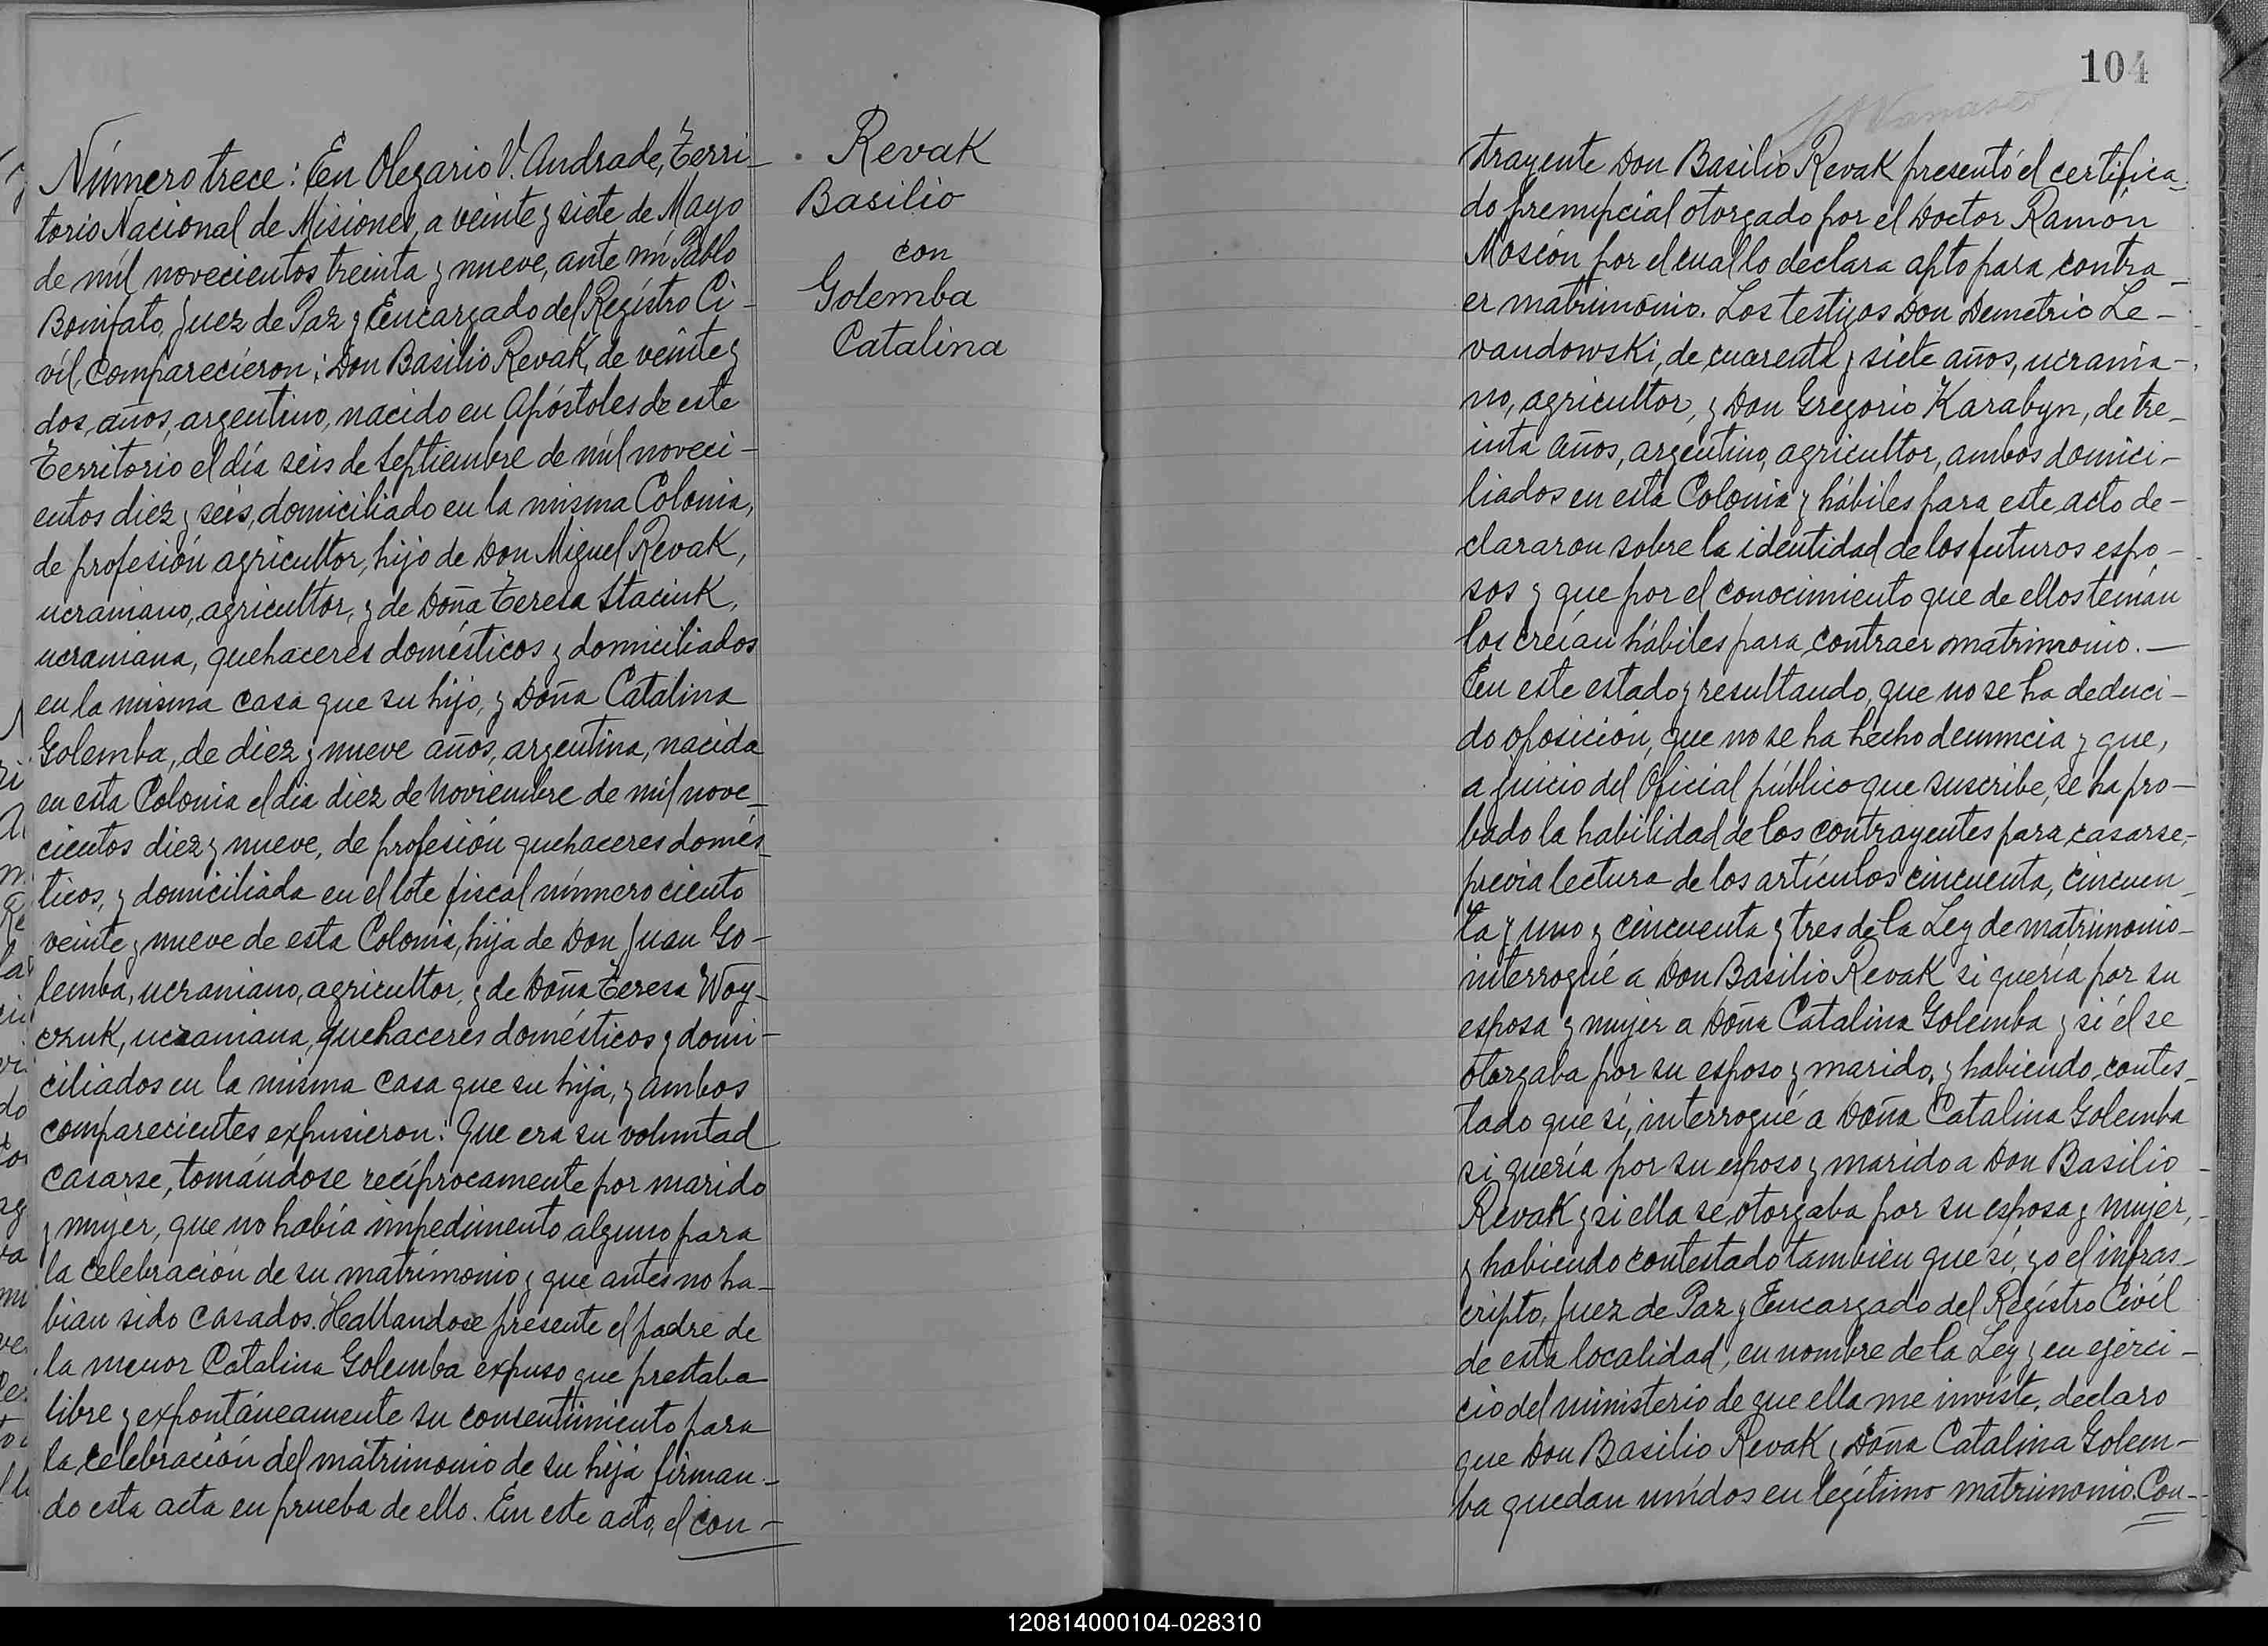 Número trece: En Olegario V. Andrade, Terri-
torio Nacional de Misiones, a veinte y siete de Mayo
de mil novecientos treinta y nueve, ante mí Pablo
Bonifato, Juez de Paz y Encargado del Registro Ci-
vil, comparecieron: Don Basilio Revak, de veinte y
dos años, argentino, nacido en Apóstoles de este
Territorio el día seis de Septiembre de mil noveci-
entos diez y seis, domiciliado en la misma Colonia,
de profesión agricultor, hijo de Don Miguel Revak,
ucraniano, agricultor, y de Doña Teresa Staciuk,
ucraniana, quehaceres domésticos y domiciliados
en la misma casa que su hijo, y Doña Catalina
Golemba, de diez y nueve años, argentina, nacida
en esta Colonia el día diez de Noviembre de mil nove-
cientos diez y nueve, de profesión quehaceres domés-
ticos, y domiciliada en el lote fiscal número ciento
veinte y nueve de esta Colonia, hija de Don Juan Go-
lemba, ucraniano, agricultor, y de Doña Teresa Woy-
czuk, ucraniana, quehaceres domésticos y domi-
ciliados en la misma casa que su hija, y ambos
comparecientes expusieron: Que era su voluntad
casarse, tomándose recíprocamente por marido
y mujer, que no había impedimento alguno para
la celebración de su matrimonio y que antes no ha-
bian sido casados. Hallandose presente el padre de
la menor Catalina Golemba expuso que prestaba
libre y expontáneamente su consentimiento para
la celebración del matrimonio de su hija firman-
do esta acta en prueba de ello. En este acto, el con-
Revak
Basilio
con
Golemba
Catalina
104
trayente Don Basilio Revak presentó el certifica-
do prenupcial otorgado por el Doctor Ramón
Moscón por el cual lo declara apto para contra-
er matrimonio. Los testigos Don Demetrio Le-
vandowski, de cuarenta y siete años, ucrania-
no, agricultor, y Don Gregorio Karabyn, de tre-
inta años, argentino, agricultor, ambos domici-
liados en esta Colonia y hábiles para este acto de-
clararon sobre la identidad de los futuros espo-
sos y que por el conocimiento que de ellos tenían
los creían hábiles para contraer matrimonio. —
En este estado y resultando, que no se ha deduci-
do oposición, que no se ha hecho denuncia y que,
a juicio del Oficial público que suscribe, se ha pro-
bado la habilidad de los contrayentes para casarse,
previa lectura de los artículos cincuenta, cincuen-
ta y uno y cincuenta y tres de la Ley de matrimonio
interrogué a Don Basilio Revak si quería por su
esposa y mujer a Doña Catalina Golemba y si él se
otorgaba por su esposo y marido, y habiendo contes-
tado que sí, interrogué a Doña Catalina Golemba
si quería por su esposo y marido a Don Basilio
Revak y si ella se otorgaba por su esposa y mujer,
y habiendo contestado también que sí, yo el infras-
cripto, Juez de Paz y Encargado del Registro Civil
de esta localidad, en nombre de la Ley y en ejerci-
cio del ministerio de que ella me inviste, declaro
que Don Basilio Revak y Doña Catalina Golem-
ba quedan unidos en legítimo matrimonio. Con-
120814000104-028310